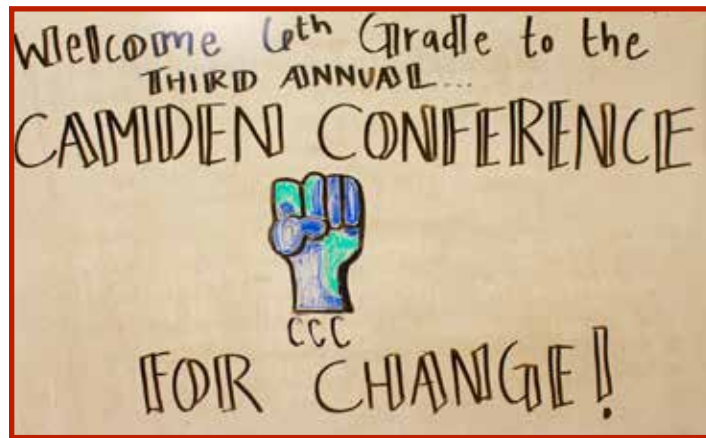 Welcome 6th Grade to the
THIRD ANNUAL...
CAMDEN CONFERENCE
CCC
FOR CHANGE!